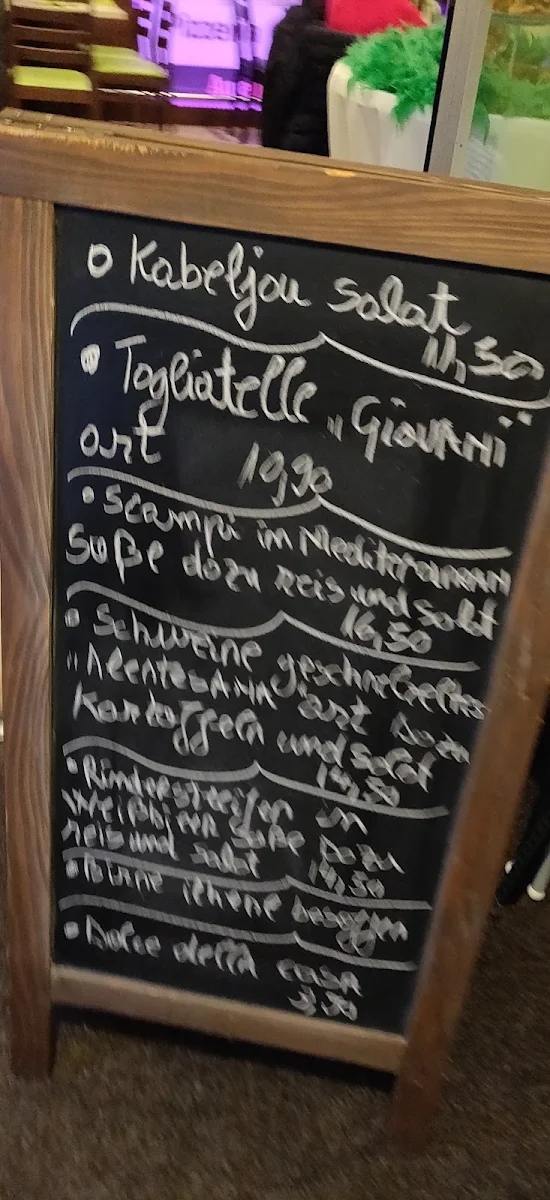 Kabeljou salat
11,50
Togliatelle „Giovani"
art 19,90
Scampi in Mediteranen
Soße dozu Reis und Salat
16,50
Schweine geschnetzeltes
art Dozu
Kartoffeln und salat
14,50
Rinderstreifen in
Weißbier Soße Dozu
Reis und salat 14,50
Birne
Dolce della casa